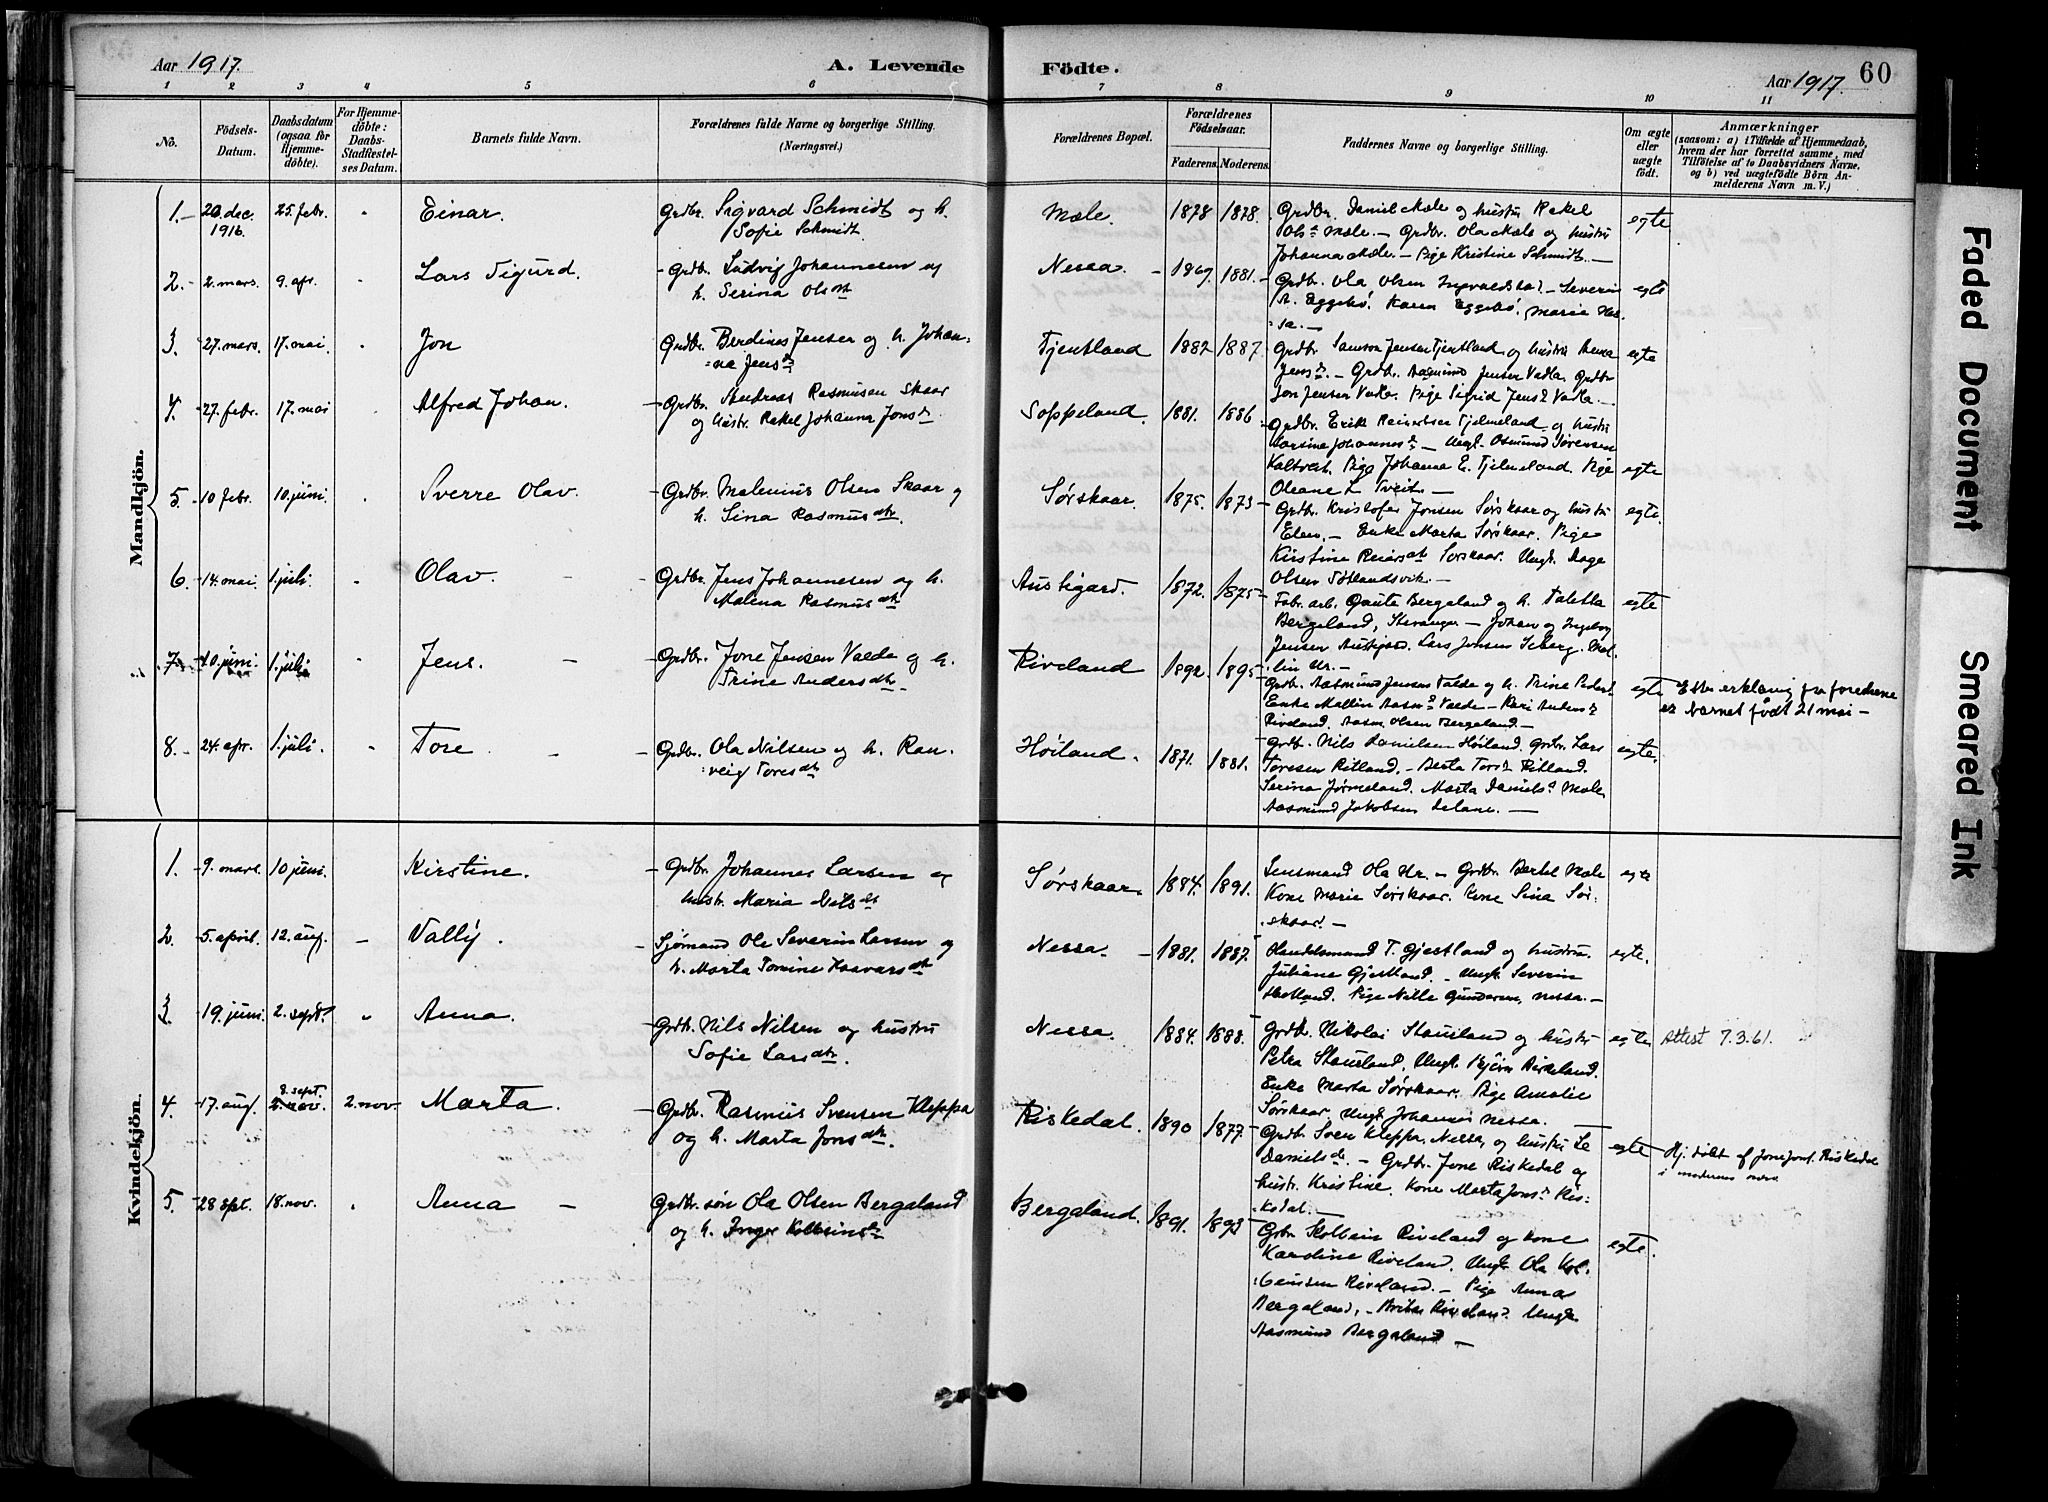 Aar 1917.
A. Levende
Födte.
Aar 1917.
60
1 2 3 4 5 6 7 8 9 10 11
No.
Födsels-
Datum.
Daabsdatum
(ogsaa for
Hjemme-
döbte).
For Hjemme-
döbte:
Daabs-
Stadfæstel-
ses Datum.
Barnets fulde Navn.
Forældrenes fulde Navne og borgerlige Stilling.
(Næringsvei.)
Forældrenes Bopæl.
Forældrenes
Födselsaar.
Faderens. Moderens.
Faddernes Navne og borgerlige Stilling.
Om ægte
eller
uægte
født.
Anmærkninger
(saasom: a) i Tilfælde af Hjemmedaab,
hvem der har forrettet samme, med
Tilföielse af to Daabsvidners Navne.
og b) ved uægtefödte Börn An-
melderens Navn m. V.)
Mandkjön.
1. 20. dec. 1916 25. febr. " Einar. Grdbr. Sigvard Schmidt og h.
Sofie Schmidt.
Mæle. 1878 1878.
Grdbr. Daniel Mæle og hustru Rakel
Olsd Mæle. — Grdbr. Ola Mæle og hustru
Johanna Mæle. — Pige Kristine Schmidt. —
egte
2. 2. mars. 9. apr. " Lars Sigurd. Grdbr. Ludvig Johannesen og
h. Serina Olsdtr
Nessa. 1869. 1881.
Grdbr. Ola Olsen Ingvaldstad — Severin
A. Eggebø, Karen Eggebø, Marie Nes-
sa. —
egte
3. 27. mars. 17. mai. " Jon Grdbr. Berdines Jensen og h. Johan-
na Jensd.
Tjentland 1882 1887.
Grdbr. Samson Jensen Tjentland og hustru Anna
Jensd. — Grdbr. Aasmund Jensen Vadla. Grdbr
Jon Jensen Vadla. Pige Sigrid Jensd Vadla. —
egte
4. 27. febr. 17. mai " Alfred Johan. Grdbr. Andreas Rasmusen Skaar
og hustr. Rakel Johanna Jonsd.
Soppeland. 1881. 1886
Grdbr. Erik Reinertsen Tjelmeland og hustru
Larsine Johannesd. — Ungk. Osmund Sørensen
Kaltveit. Pige Johanne E. Tjelmeland. Pige
Oleane L Tveit. —
egte
5 10 febr. 10. juni. " Sverre Olav. Grdbr. Malenius Olsen Skaar og
h. Sina Rasmusdtr.
Sørskaar. 1875. 1873
Grdbr. Kristofer Jonsen Sørskaar og hustru
Elen. — Enke Marta Sørskaar. Pige
Kristine Reiarsdtr Sørskaar. Ungk. Dage
Olsen Søtlandsvik. —
egte.
6. 14. mai. 1. juli. " Olav. Grdbr. Jens Johannesen og h.
Malena Rasmusdtr
Austigard. 1872. 1875
Fabr. arb. Gaute Bergeland og h. Taletta
Bergeland, Stavanger — Johan og Ingeborg
Jensen Austigard. Lars Jonsen Seberg. Mal-
lin Ur. —
egte
7. 10. juni. 1. juli " Jens. Grdbr. Jone Jensen Valde og h.
Trine Andersdtr.
Riveland 1892. 1895
Grdbr. Aasmund Jensen Valde og h. Trine Pedersd
Enke Mallin Aasmd Valde — Kari Andersd
Riveland. Aasm. Olsen Bergeland. —
egte Efter erklæring fra foreldrene
er barnet født 21 mai —
8. 24. apr. 1. juli. " Tore Grdbr. Ola Nilsen og h. Ran-
veig Toresdtr
Høiland. 1871. 1881.
Grdbr. Nils Danielsen Høiland. Grdbr. Lars
Toresen Ritland. — Berta Torsd Ritland.
Serina Jørmeland. Marta Danielsd Mæle
Aasmund Jakobsen Lelane. —
egte.
Kvindekjön.
1. 9. mars. 10 juni. Kirstine. Grdbr. Johannes Larsen og
hustr. Maria Nilsdtr
Sørskaar. 1884. 1891.
Lensmand Ola Ur. — Grdbr. Bertel Mæle
Kone Marie Sørskaar. Kone Sina Sør-
skaar. —
egte
2. 5. april. 12. aug. Vally. Sjømand Ole Severin Larsen og
h. Marta Tomine Haavarsdtr
Nessa. 1881. 1887.
Handelsmand T. Gjestland og hustru
Juliane Gjestland. — Ungk. Severin
Hetland. Pige Nille Gundersen, Nessa. —
egte.
3. 19. juni. 2. sept. " Anna. Grdbr. Nils Nilsen og hustru
Sofie Larsdtr.
Nessa. 1884. 1888.
Grdbr. Nikolai Stausland og hustru
Petra Stausland, Ungk. Bjørn Birkeland.
Enke Marta Sørskaar. Pige Amalie
Sørskaar. Ungk. Johannes Nessa. —
egte. Attest 7.3.61.
4. 17. aug. 8. sept. 2. nov. 2. nov. Marta. Grdbr. Rasmus Svensen Kleppa
og h. Marta Jonsdtr.
Riskedal. 1890 1877.
Grdbr. Sven Kleppa, Nessa, og hustru Le
Danielsdr. — Grdbr. Jone Riskedal og
hustr. Kristine. Kone Marta Jonsd Ris-
kedal. —
egte Hj. døbt af Jone Jons. Riskedal
i moderens nærv.
5. 28 spt. 18. nov. " Anna Grdbr. søn Ola Olsen Bergaland
og h. Inger Kolbeinsd.
Bergaland. 1891. 1893
Grbr. Kolbein Riveland og kone
Karoline Riveland. Ungk. Ola Kol-
beinsen Riveland. — Pige Anna
Bergaland, — Riveland. Ungk.
Aasmund Bergaland —
egte.
Faded Document
Smeared Ink